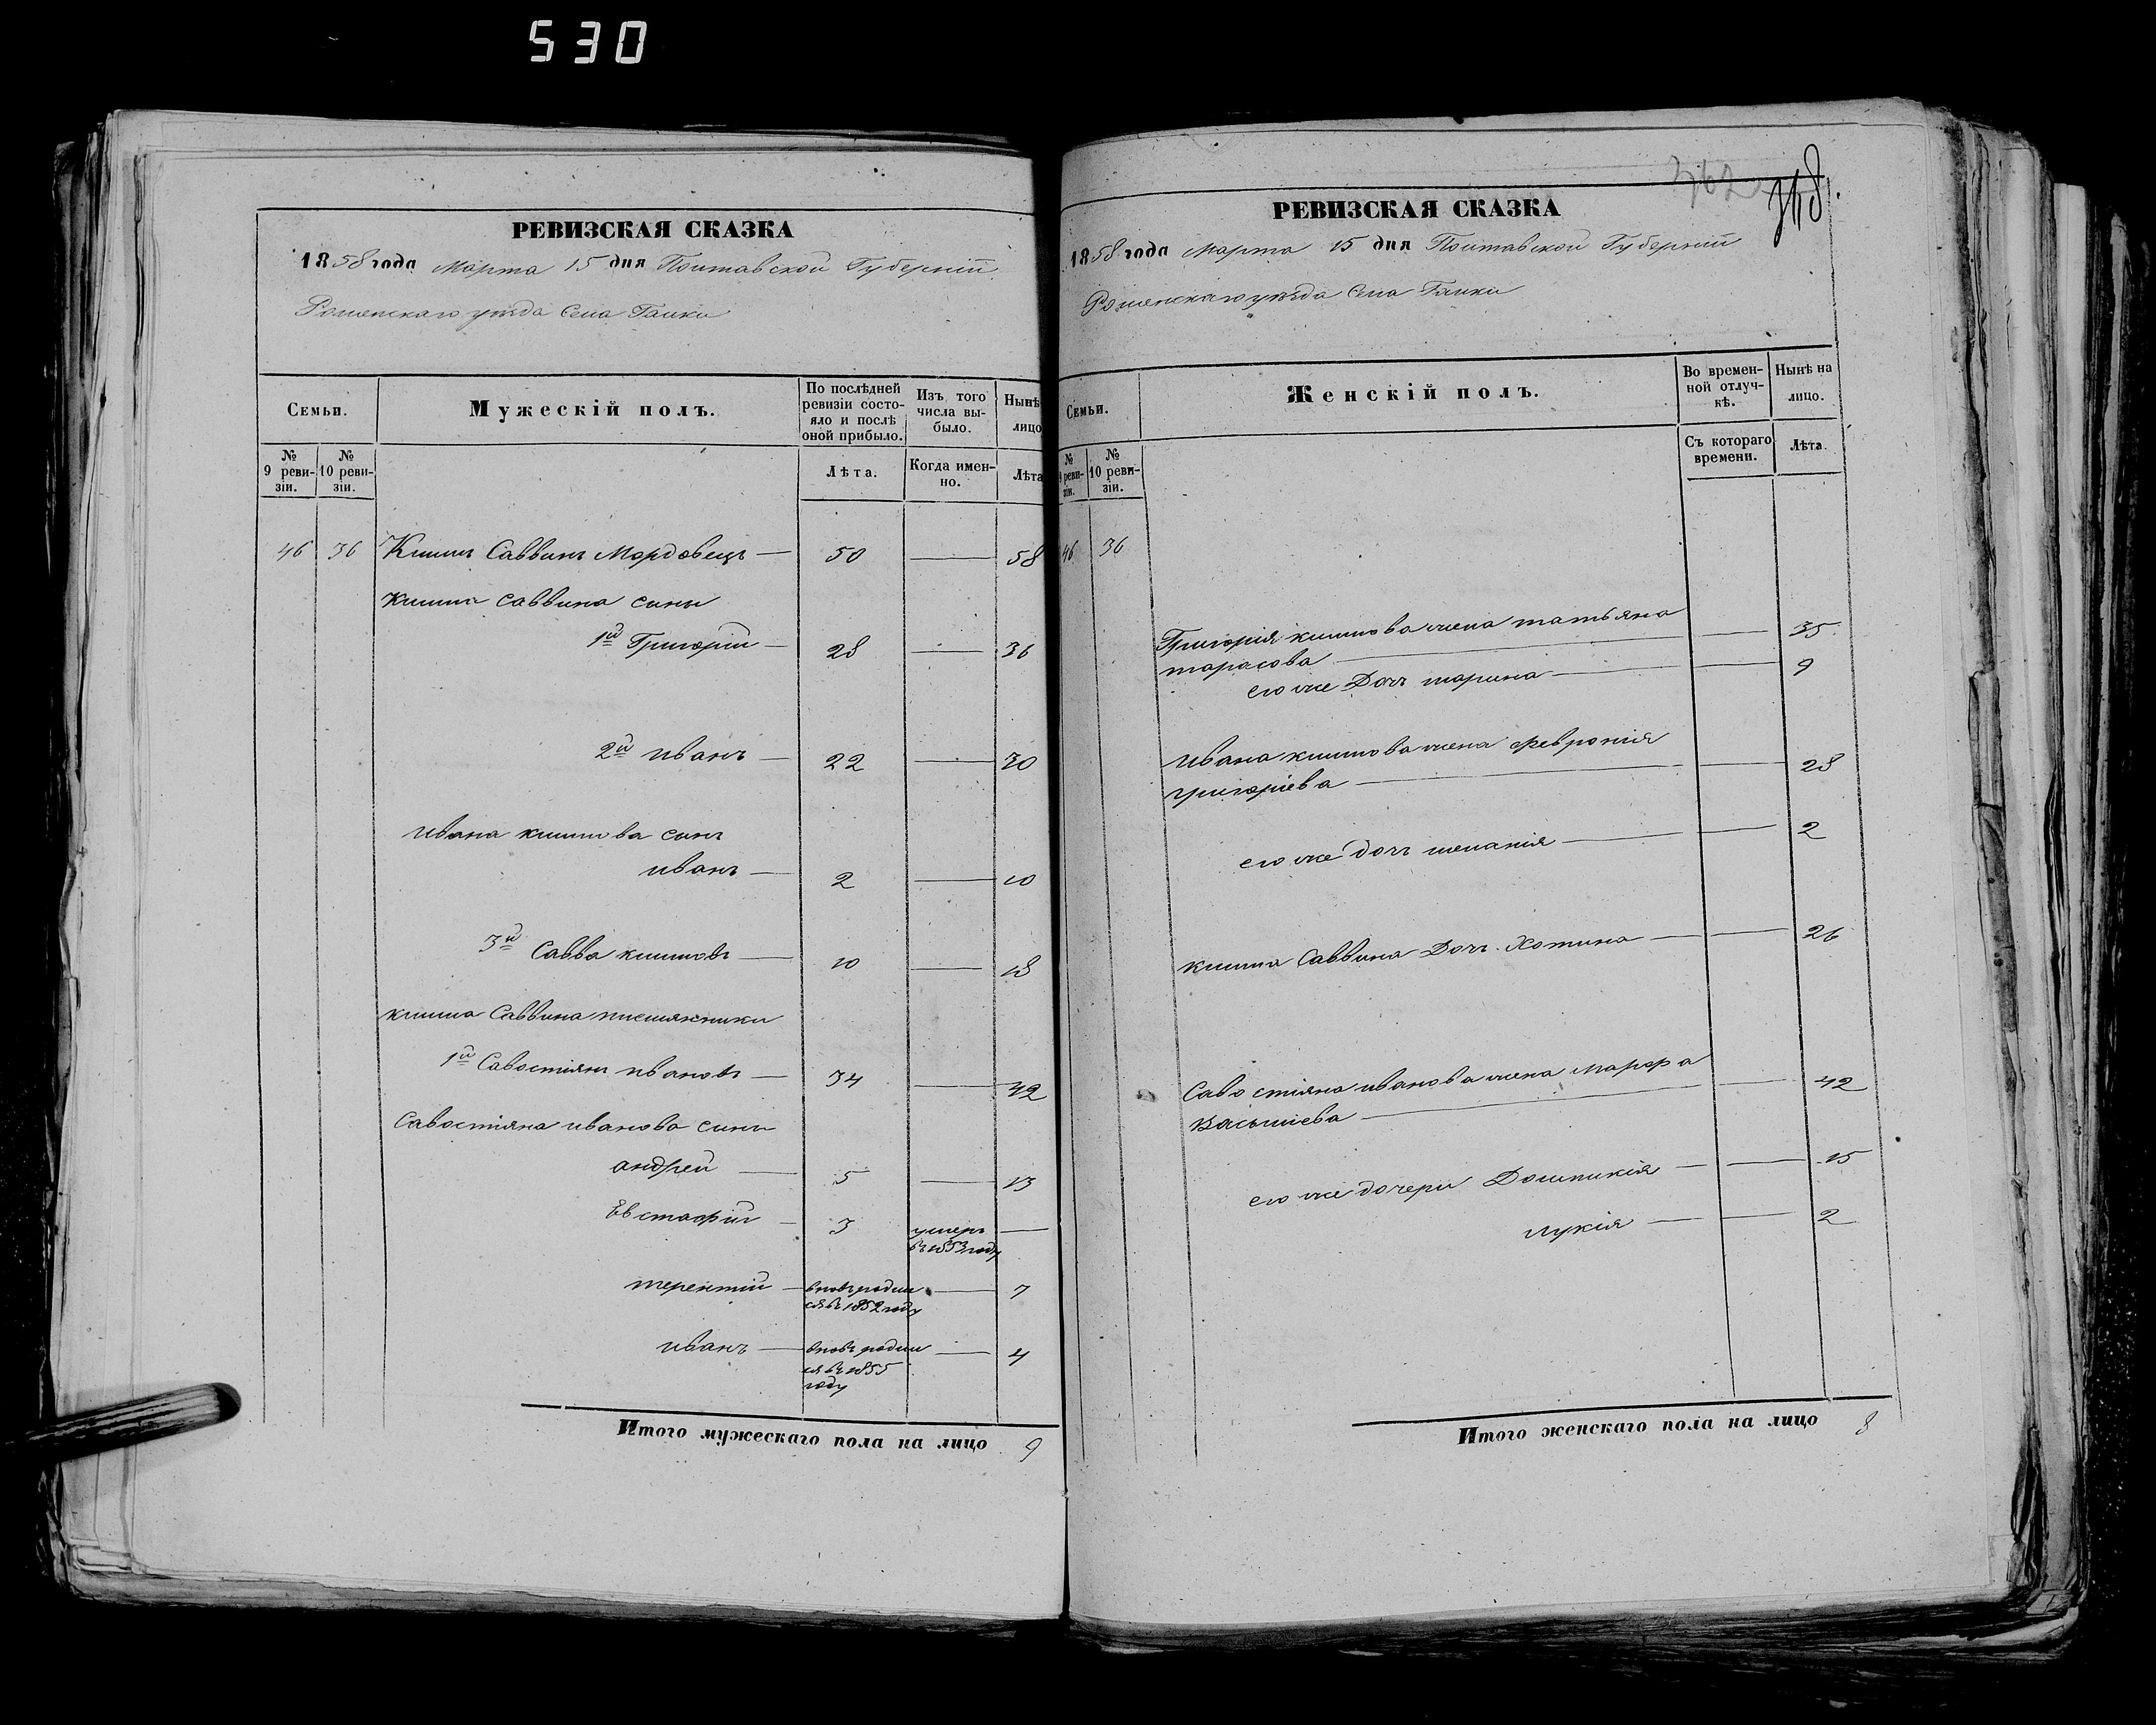 530
РЕВИЗСКАЯ СКАЗКА
1858 года Марта 15 дня Полтавской Губерніи
Роменскаго уезда Села Галки
Семьи.
Мужескій полъ.
По послѣдней ревизіи состояло и послѣ оной прибыло.
Изъ того числа выбыло.
Нынѣ
лицо
№ 9 ревизіи.
№ 10 ревизіи.
Лѣта.
Когда именно.
Лѣта
46 36 Климъ Саввинъ Мордовецъ — 50 — 58
Клима Саввина сины
1й Григорій — 28 — 36
2й иванъ — 22 — 30
ивана климова синъ
иванъ — 2 — 10
3й Савва климовъ — 10 — 18
клима Саввина племянники
1й Савостіянъ ивановъ — 34 — 42
Савостіяна иванова сины
андрей — 5 — 13
Евстафій — 3 умеръ —
въ 1853 году
терентій — вновь родил — 7
ся въ 1852 году
иванъ — вновь родил — 4
ся въ 1855
году
Итого мужескаго пола на лицо 9
362
348
РЕВИЗСКАЯ СКАЗКА
1858 года Марта 15 дня Полтавской Губерніи
Роменскаго уезда Села Галки
Семьи.
Женскій полъ.
Во временной отлучкѣ.
Нынѣ на лицо.
№ 9 ревизіи.
№ 10 ревизіи.
Съ котораго времени.
Лѣта.
46 36
Григорія климова жена татьяна
тарасова — — 35
его же Дочь марина — — 9
ивана климова жена феврония
григоріева — — 28
его же дочь меланія — — 2
клима Саввина Дочь Хотина — — 26
Савостіяна иванова жена марфа
Васыліева — — 42
его же дочери Домникія — — 15
лукія — — 2
Итого женскаго пола на лицо 8